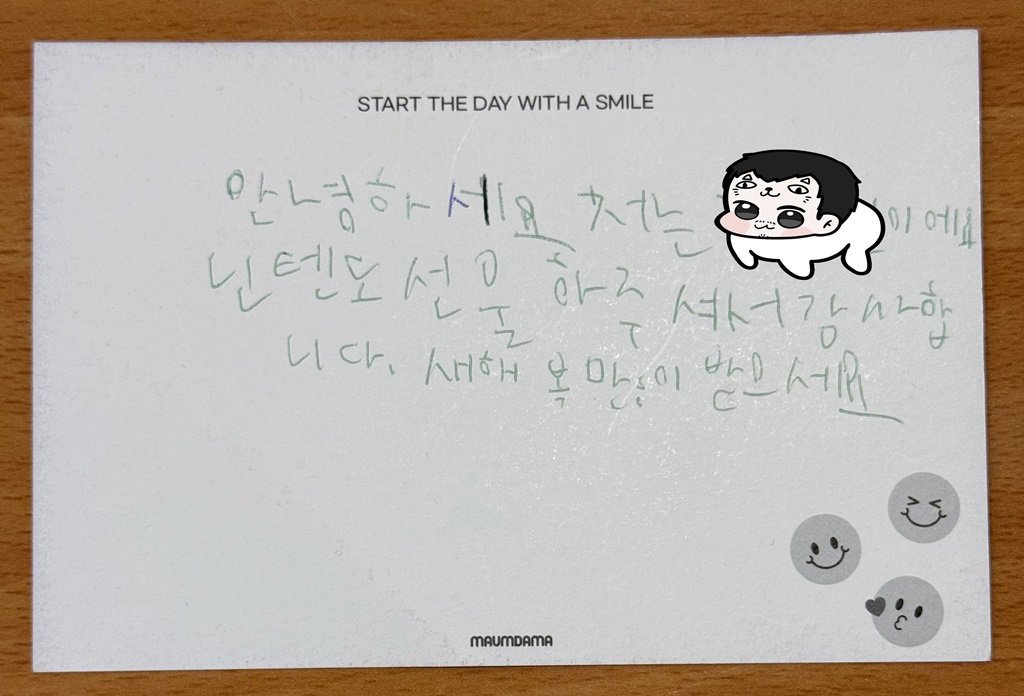 START THE DAY WITH A SMILE
안녕하세요 저는 이에요
닌텐도 선물 하주셔서 감사합
니다. 새해 복 많이 받으세요
MAUMDAMA